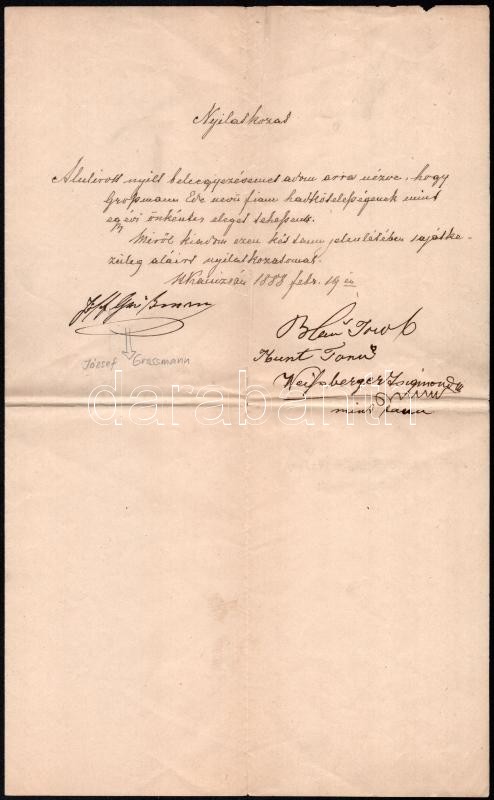 Nyilatkozat
Alulirott nyilt beleegyezésemet adom arra nézve, hogy
Großmann Ede nevü fiam hadkötelességének mint
egyévi önkéntes eleget tehessen.
Miről kiadom ezen két tanu jelenlétében sajátke-
züleg aláirt nyilatkozatomat.
NKanizsán 1888 febr. 19 én
József Grossmann
Blau
Weiszberger Zsigmond
mint tanu
darabanth